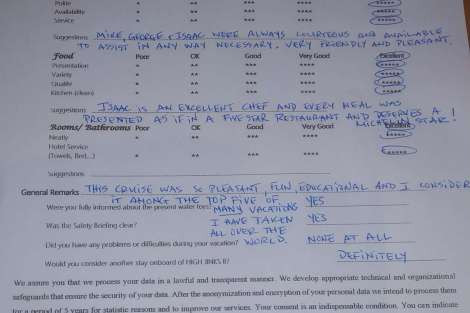 Polite * ** *** **** *****
Availability * ** *** **** *****
Service * ** *** **** *****
Suggestions MIKE, GEORGE & ISAAC WERE ALWAYS COURTEOUS AND AVAILABLE
TO ASSIST IN ANY WAY NECESSARY. VERY FRIENDLY AND PLEASANT.
Food Poor OK Good Very Good Excellent
Presentation * ** *** **** *****
Variety * ** *** **** *****
Quality * ** *** **** *****
Kitchen (clean) * ** *** **** *****
Suggestions ISAAC IS AN EXCELLENT CHEF AND EVERY MEAL WAS
PRESENTED AS IF IN A FIVE STAR RESTAURANT AND DESERVES A
MICHELIN STAR!
Rooms/ Bathrooms Poor OK Good Very Good Excellent
Neatly * ** *** **** *****
Hotel Service
(Towels, Bed...) * ** *** **** *****
Suggestions
General Remarks THIS CRUISE WAS SO PLEASANT, FUN, EDUCATIONAL AND I CONSIDER
IT AMONG THE TOP FIVE OF
Were you fully informed about the present water fees? MANY VACATIONS YES
Was the Safety Briefing clear? I HAVE TAKEN YES
ALL OVER THE
Did you have any problems or difficulties during your vacation? WORLD. NONE AT ALL
Would you consider another stay onboard of HIGH JINKS II? DEFINITELY
We assure you that we process your data in a lawful and transparent manner. We develop appropriate technical and organizational
safeguards that ensure the security of your data. After the anonymization and encryption of your personal data we intend to process them
for a period of 5 years for statistic reasons and to improve our services. Your consent is an indispensable condition. You can indicate